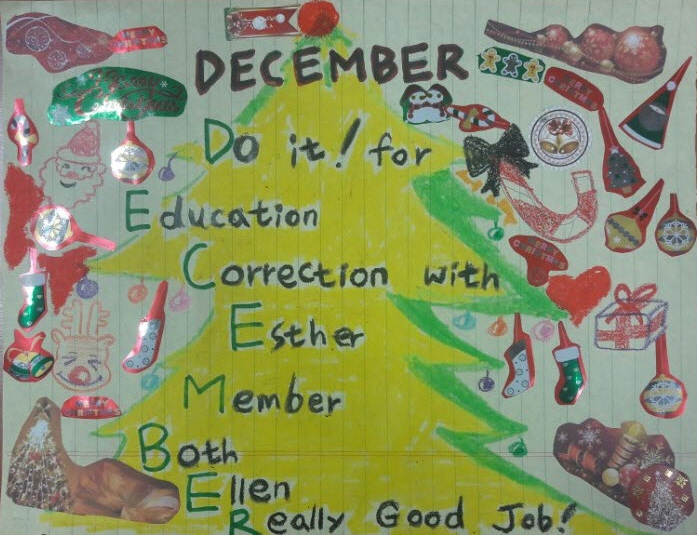 DECEMBER
Do it! for
Education
Correction with
Esther
Member
Both
Ellen
Really Good Job!